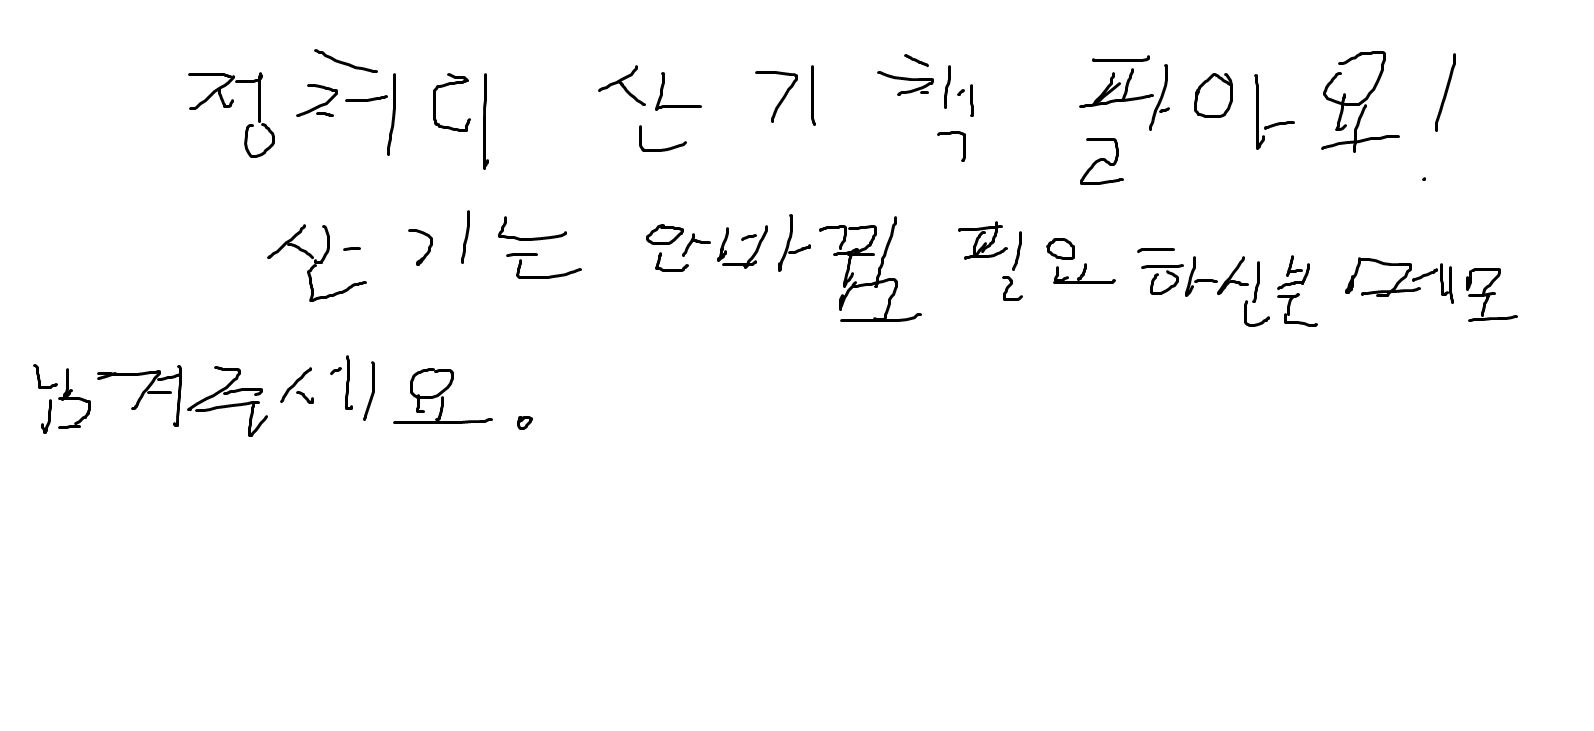 정처디 산기책 팔아요!
산기는 안바뀜 필요하신분 메모
남겨주세요.